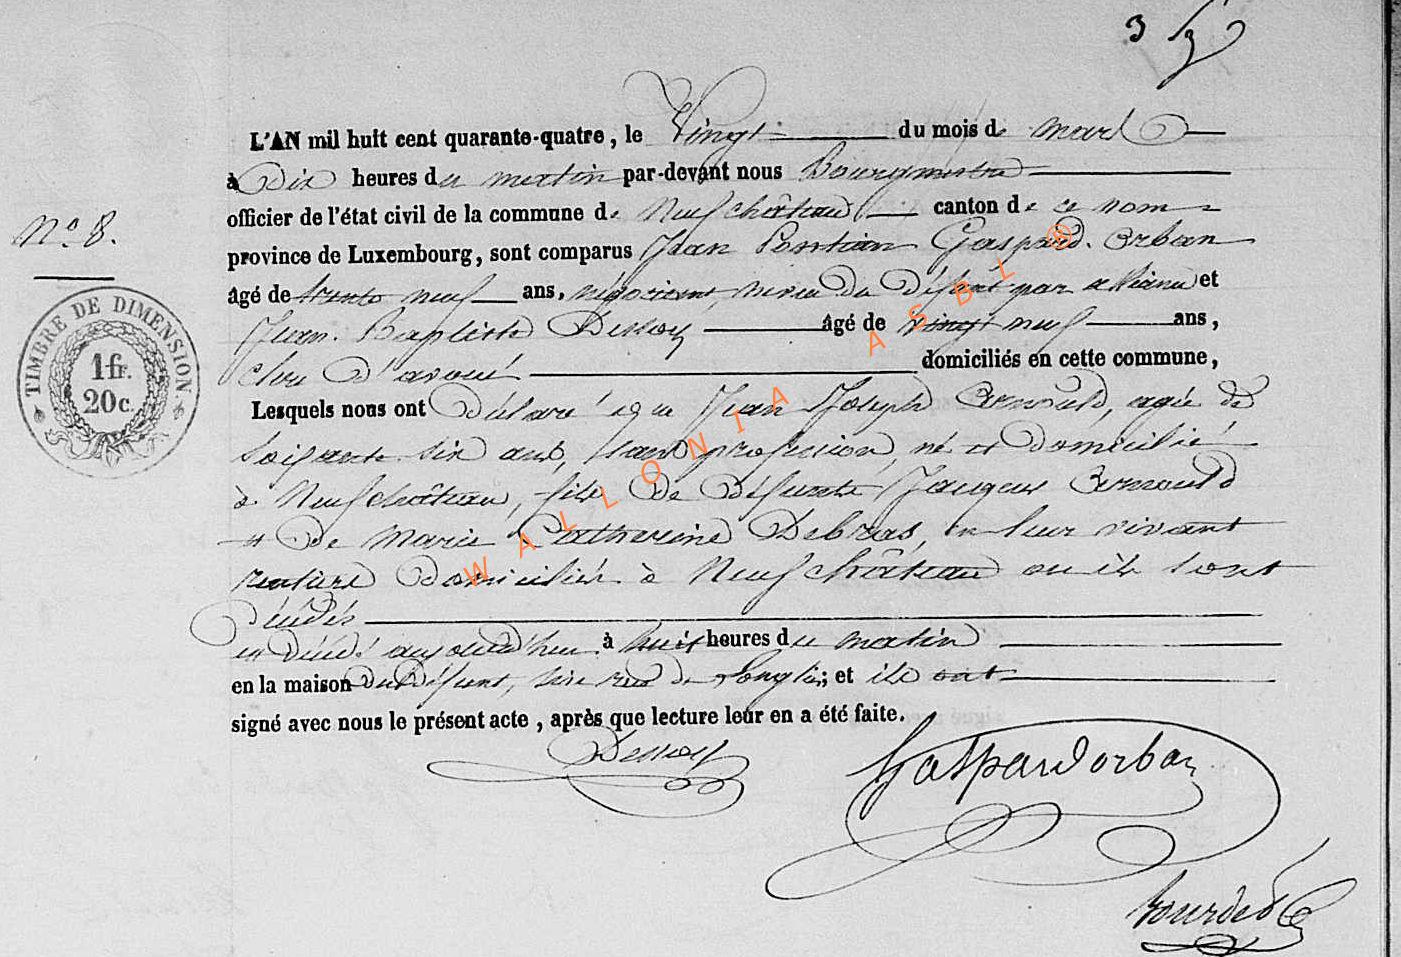 3
L'AN mil huit cent quarante-quatre, le Vingt du mois de mars
à Dix heures du matin par-devant nous Bourgmestre
officier de l'état civil de la commune de Neufchâteau canton de ce nom
N° 8.
province de Luxembourg, sont comparus Jean Pontian Gaspard Orban
âgé de trente neuf ans, négociant, neveu du Défunt par alliance et
Jean Baptiste Dessoy âgé de vingt neuf ans,
clerc d'avoué domiciliés en cette commune,
Lesquels nous ont Déclaré que Jean Joseph Arnould, agé de
soixante six ans, sans profession, né et Domicilié
à Neufchâteau, fils De Défunts Jacques Arnould
et De Marie Catherine Debras, en leur vivant
rentiers Domiciliés à Neufchâteau où ils sont
Décédés
est Décédé aujourd'hui à huit heures du matin
en la maison du Défunt, sise rue de Longlier; et ils ont
signé avec nous le présent acte, après que lecture leur en a été faite.
TIMBRE DE DIMENSION
1 fr.
20 c.
Dessoy
Gaspard orban
WALLONIA ASBL ®